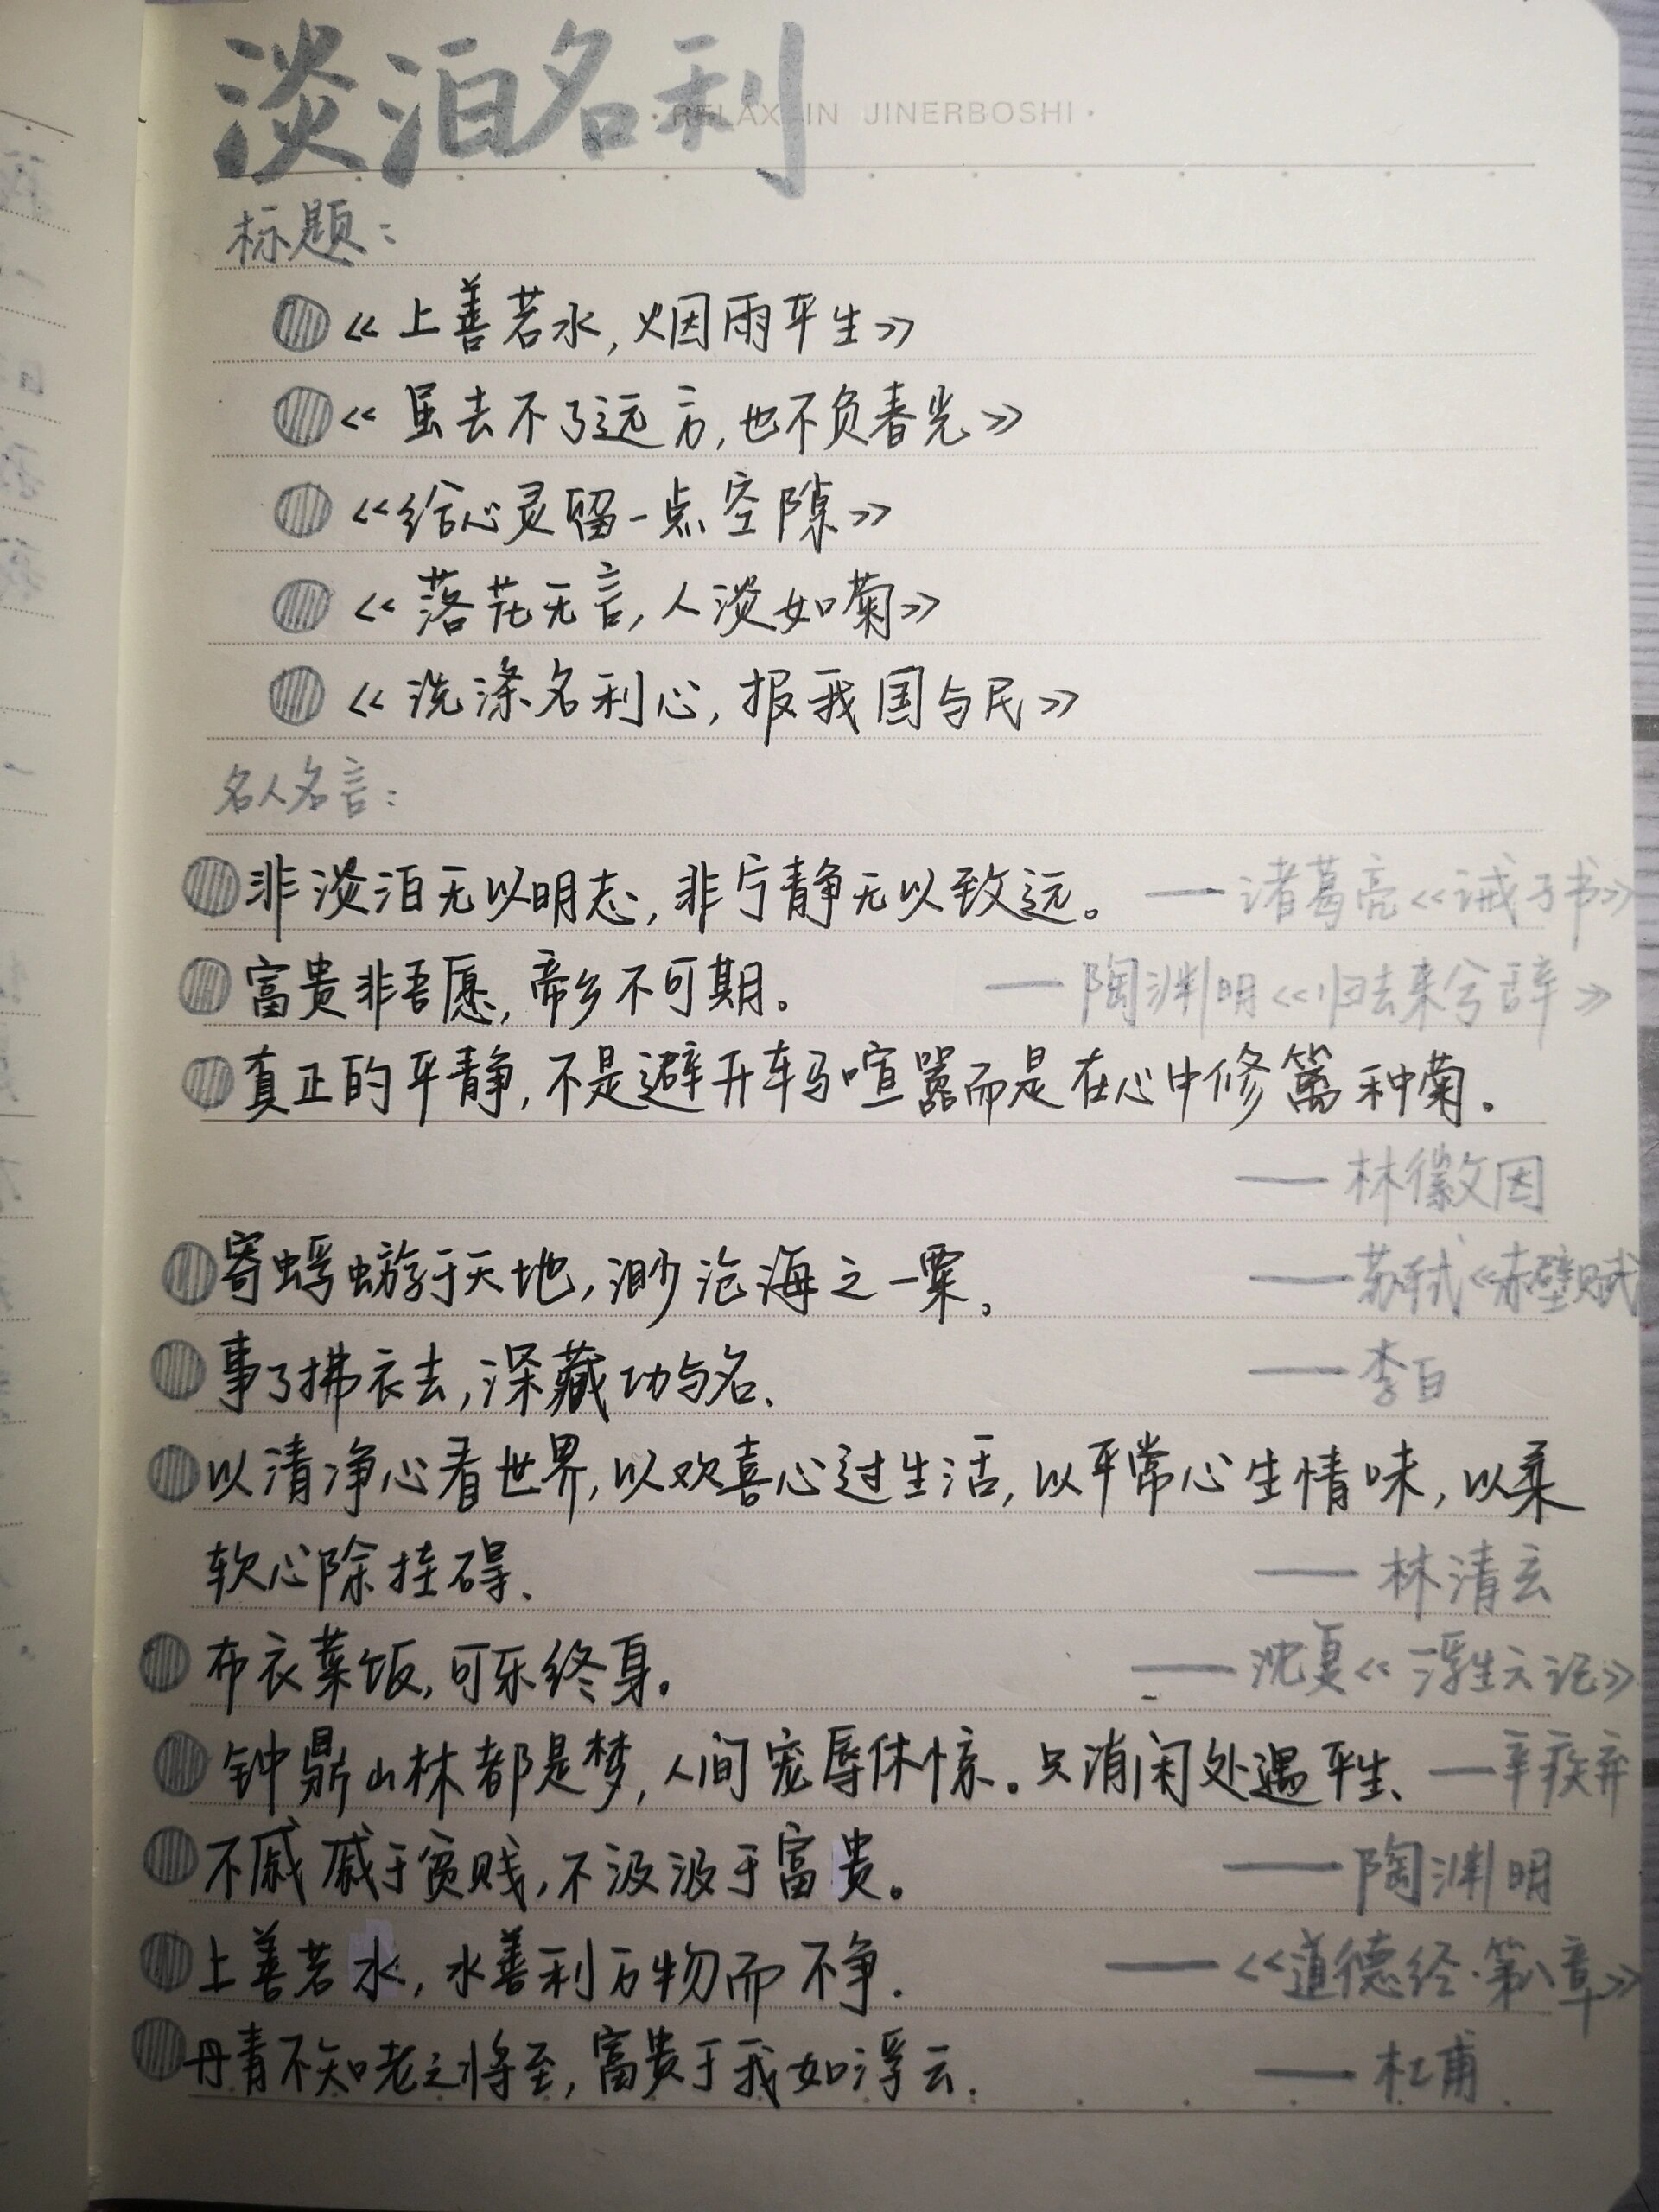 淡泊名利
· RELAX IN JINERBOSHI ·
标题:
《上善若水,烟雨平生》
《虽去不了远方,也不负春光》
《给心灵留一点空隙》
《落花无言,人淡如菊》
《洗涤名利心,报我国与民》
名人名言:
非淡泊无以明志,非宁静无以致远。 ——诸葛亮《诫子书》
富贵非吾愿,帝乡不可期。 ——陶渊明《归去来兮辞》
真正的平静,不是避开车马喧嚣而是在心中修篱种菊。
——林徽因
寄蜉蝣于天地,渺沧海之一粟。 ——苏轼《赤壁赋
事了拂衣去,深藏功与名、 ——李白
以清净心看世界,以欢喜心过生活,以平常心生情味,以柔
软心除挂碍、 ——林清玄
布衣菜饭,可乐终身。 ——沈夏《浮生六记》
钟鼎山林都是梦,人间宠辱休惊。只消闲处遇平生、 ——辛疾弃
不戚戚于贫贱,不汲汲于富贵。 ——陶渊明
上善若水,水善利万物而不争. ——《道德经·第八章》
丹青不知老之将至,富贵于我如浮云. ——杜甫